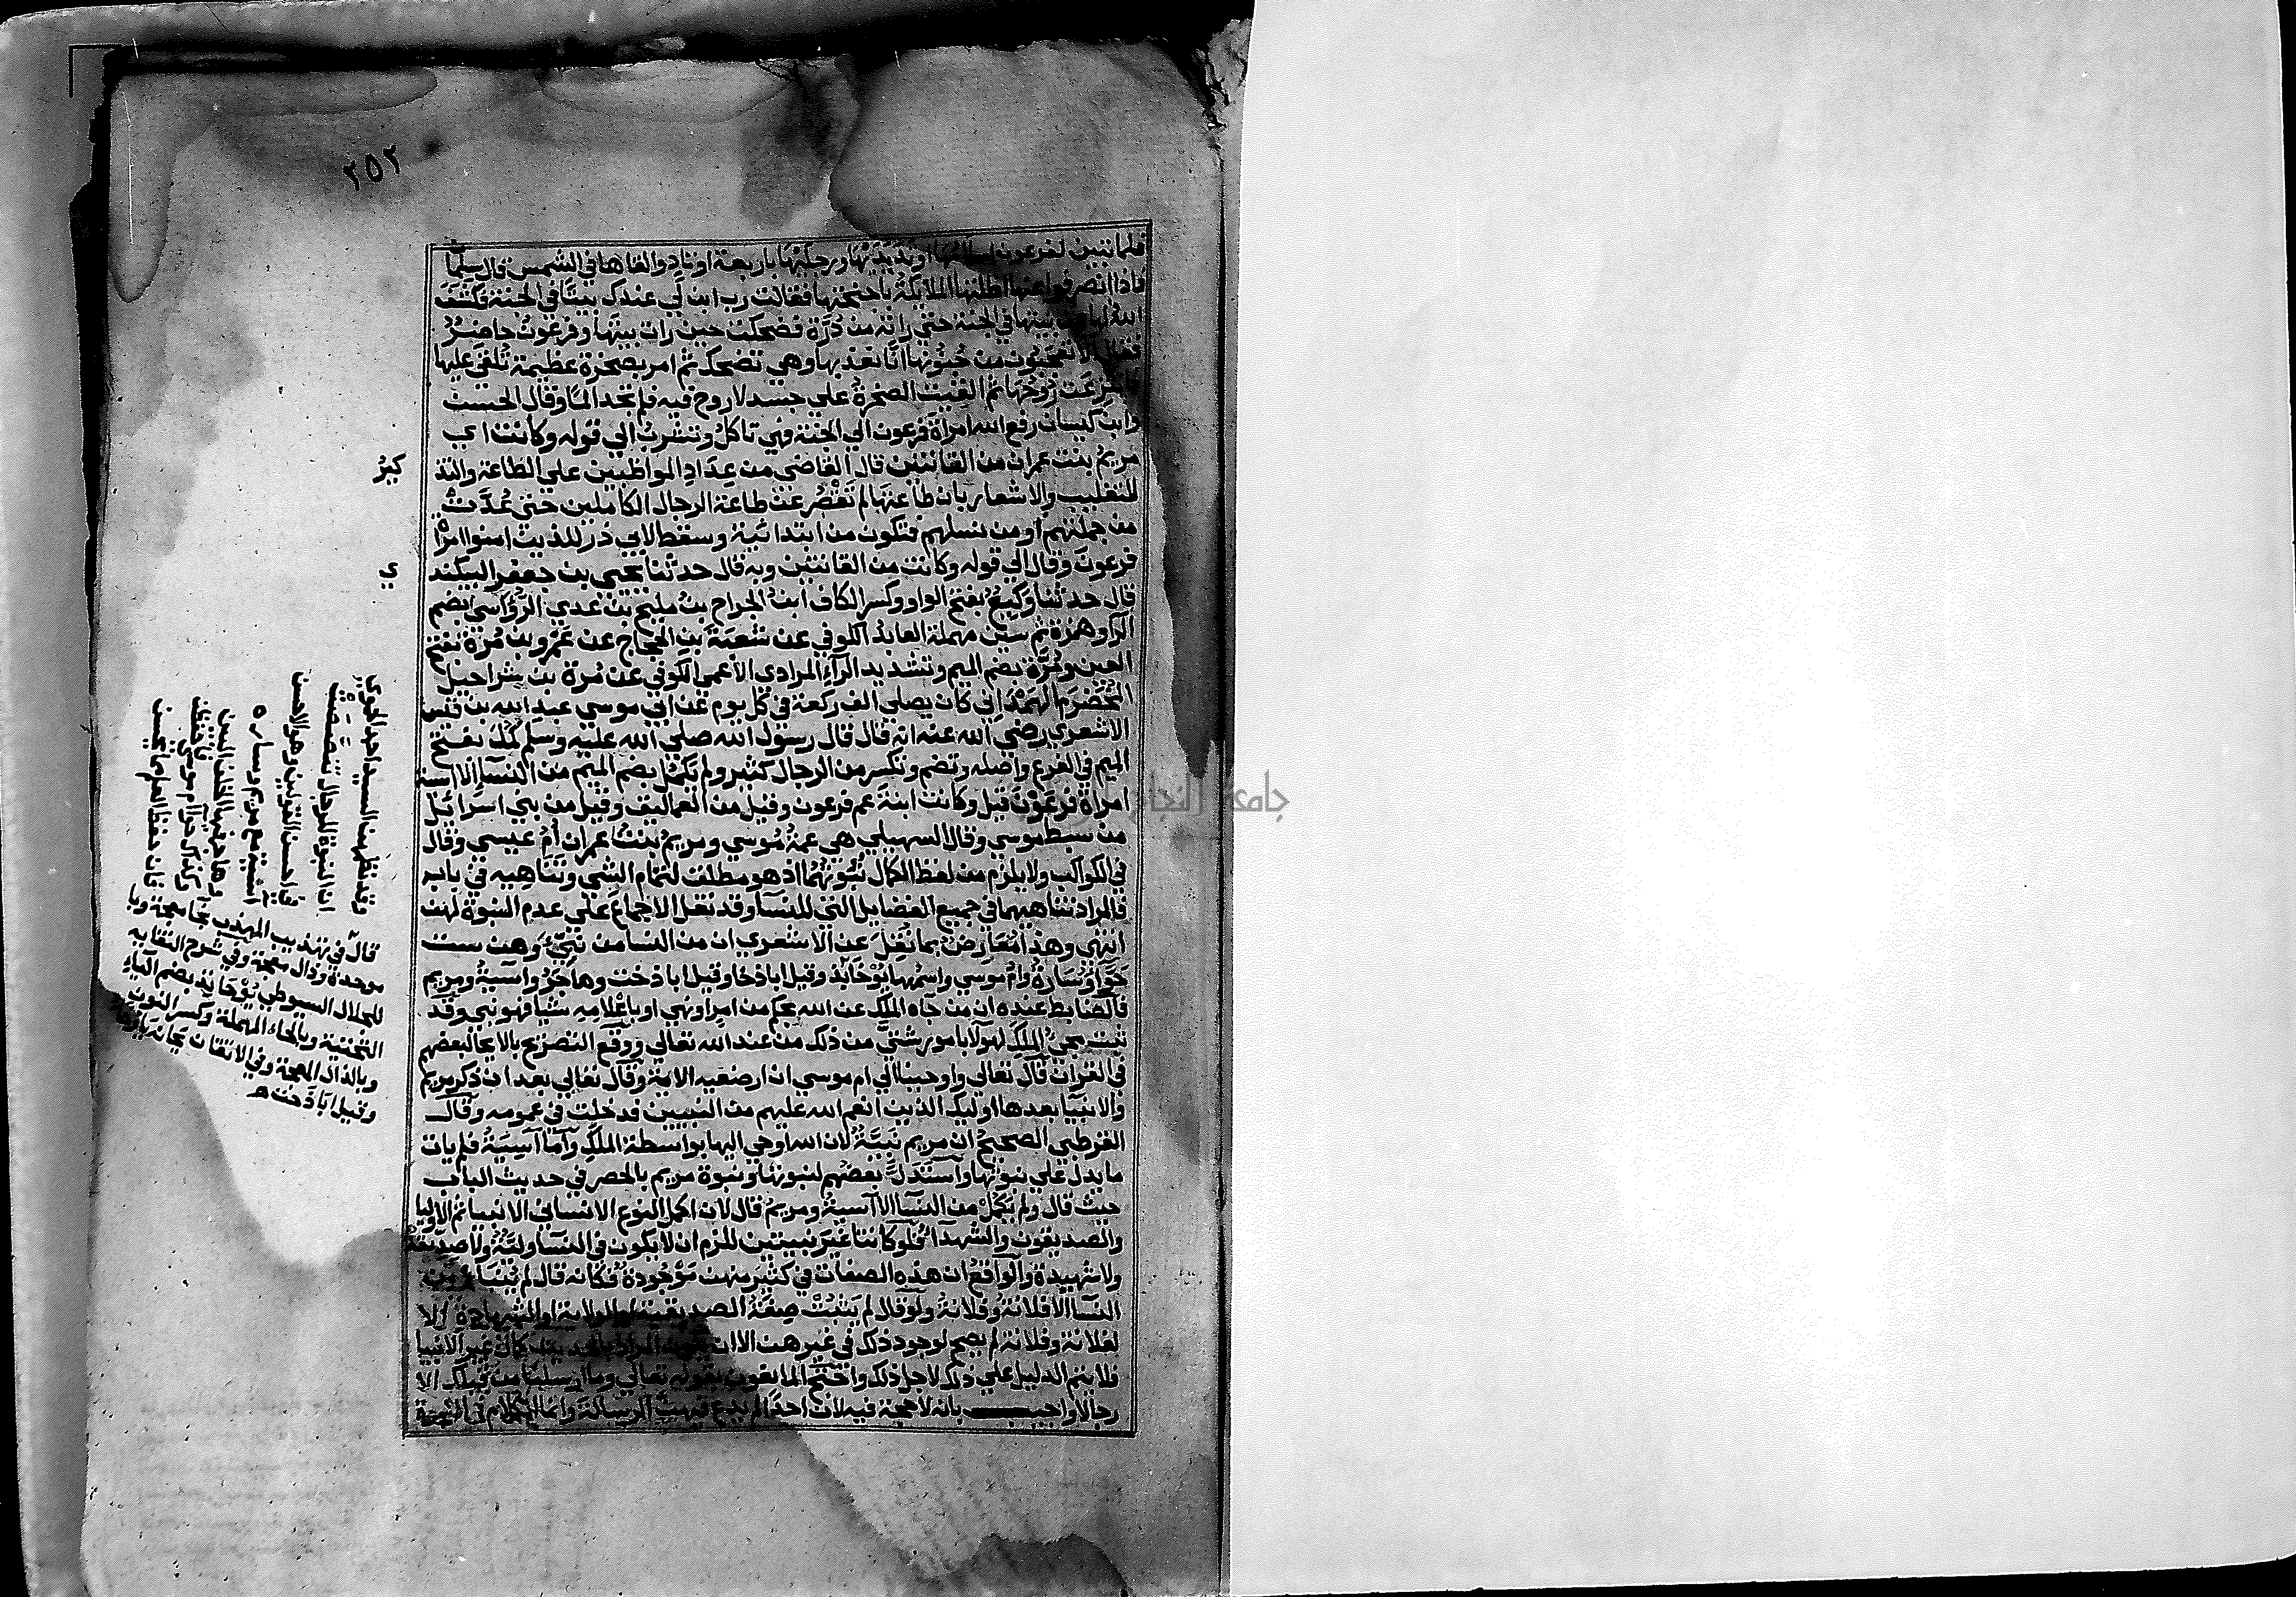 ٢٥٢
فلما تبين لفرعون اسلامها اوتد يديها ورجليها باربعة اوتاد والقاها في الشمس قال سلمان
فاذا انصرفوا عنها اظلتها الملايكة باجنحتها فقالت رب ابن لي عندك بيتا في الجنة فكشف
الله لها عن بيتها في الجنة حتي راته من درة فضحكت حين رات بيتها وفرعون حاضر
فقال الا تعجبون من جنونها انا نعذبها وهي تضحك ثم امر بصخرة عظيمة تلقي عليها
روحها ثم القيت الصخرة علي جسد لا روح فيه فلم تجد الما وقال الحسن
وابن كيسان رفع الله امراة فرعون الي الجنة فهي تاكل وتشرب الي قوله وكانت اي
مريم بنت عمران من القانتين قال القاضي من عداد المواظبين علي الطاعة والتذ
كير
للتغليب والاشعار بان طاعتها لم تقصر عن طاعة الرجال الكاملين حتي عدت
من جملتهم او من نسلهم فتكون من ابتدائية وسقط لابي ذر للذين امنوا امراة
فرعون وقال الي قوله وكانت من القانتين وبه قال حدثنا يحيي بن جعفر البيكند
ي
قال حدثنا وكيع بفتح الواو وكسر الكاف ابن الجراح بن مليح بن عدي الرؤاسي بضم
الرا وهمزة ثم سين مهملة العابد الكوفي عن شعبة بن الحجاج عن عمرو بن مرة بفتح
العين ومرة بضم الميم وتشديد الراء المرادي الاعمي الكوفي عن مرة بن شراحيل
المخضرم الهمداني كان يصلي الف ركعة في كل يوم عن ابي موسي عبد الله بن قيس
الاشعري رضي الله عنه انه قال قال رسول الله صلي الله عليه وسلم كمل بفتح
الميم في الفرع واصله وتضم وتكسر من الرجال كثير ولم يكمل بضم الميم من النسا الا اسية
امراة فرعون قيل وكانت ابنة عم فرعون وقيل من العماليق وقيل من بني اسرائيل
من سبط موسي وقال السهيلي هي عمة موسي ومريم بنت عمران ام عيسي وقال
في الكواكب ولا يلزم من لفظ الكمال نبوتهما اذ هو مطلق لتمام الشي وتناهيه في بابه
فالمراد تناهيهما في جميع الفضايل التي للنسا وقد نقل الاجماع علي عدم النبوة لهن
انتهي وهذا معارض بما نقل عن الاشعري ان من النسا من نبي وهن ست
حوا وسارة وام موسي واسمها يوخابذ وقيل اباذخا وقيل اباذخت وهاجر واسية ومريم
فالضابط عنده ان من جاه الملك عن الله بحكم من امر او نهي او باعلامه شيا فهو نبي وقد
ثبت مجي الملك لهولا بامور شتي من ذلك من عند الله تعالي ووقع التصريح بالايحا لبعضهم
في القران قال تعالي واوحينا الي ام موسي ان ارضعيه الاية وقال تعالي بعد ان ذكر مريم
والانبيا بعدها اوليك الذين انعم الله عليهم من النبيين فدخلت في عمومه وقال
القرطبي الصحيح ان مريم نبية لان الله اوحي اليها بواسطة الملك واما اسية فلم يات
ما يدل علي نبوتها واستدل بعضهم لنبوتها ونبوة مريم بالحصر في حديث الباب
حيث قال ولم يكمل من النسا الا اسية ومريم قال لان اكمل النوع الانساني الانبيا ثم الاوليا
والصديقون والشهدا فلو كانتا غير نبيتين للزم ان لا يكون في النسا ولية ولا صديقة
ولا شهيدة والواقع ان هذه الصفات في كثير منهن موجودة فكانه قال لم ينبا من
النسا الا فلانة وفلانة ولو قال لم يثبت صفة الصديقية او الولاية او الشهادة الا
لفلانة وفلانة لم يصح لوجود ذلك في غيرهن الا ان يكون المراد بالحديث كمال غير الانبيا
فلا يتم الدليل علي ذلك لاجل ذلك واحتج المانعون بقوله تعالي وما ارسلنا من قبلك الا
رجالا واجيب بانه لا حجة فيه لان احدا لم يدع فيهن الرسالة وانما الكلام في النبوة
وقد نظمهن السيد احمد الحموي
ان النبوة للرجال تخصصت
في احسن القولين وهو الاحسن
اسية مع مريم وسارة
وهاجر
كذاك حوا ام موسي
قال في تهذيب المهذب بخا معجمة وبا
موحدة وذال معجمة وفي شرح النقاية
للجلال السيوطي يوحانذ بضم الياء
التحتية وبالحاء المهملة وكسر النون
وبالذال المعجمة وفي الاتقان
وقيل اباذخت ه
جامعة النجاح